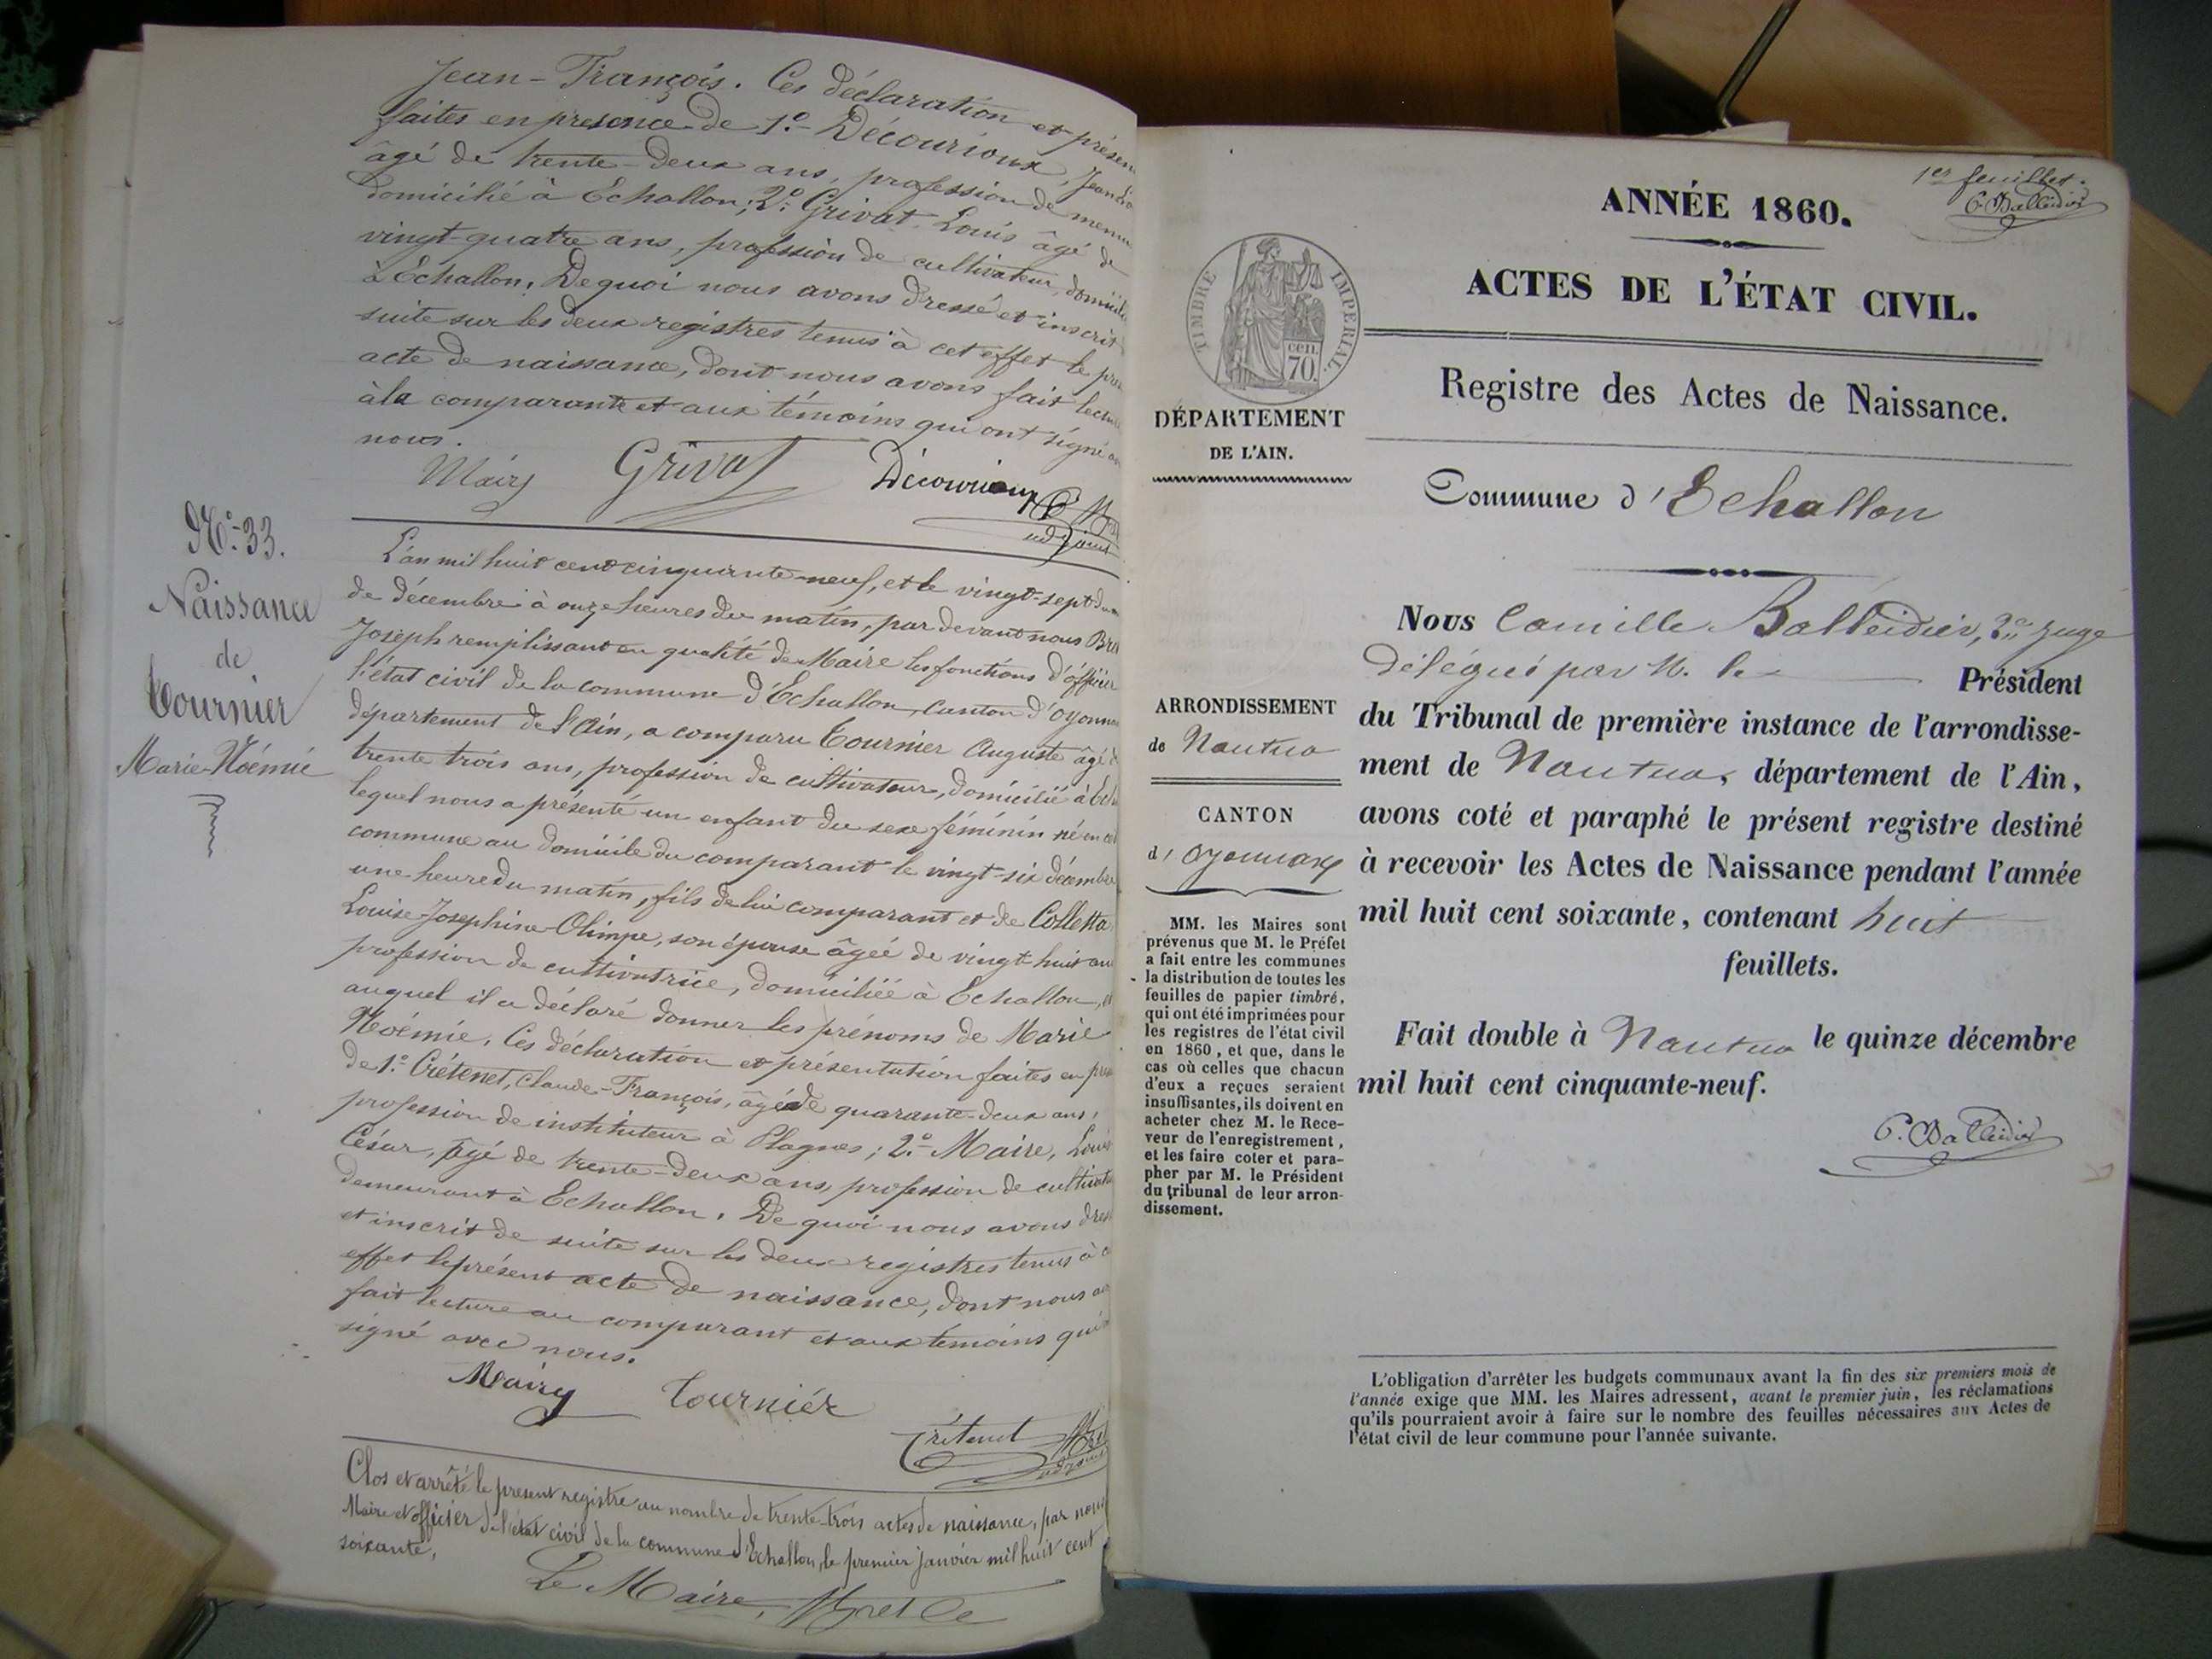 Jean-François. Ces déclaration et présen
faites en présence de 1.° Décourioux, Jean
âgé de trente-deux ans, profession de menu
domicilié à Echallon; 2.° Grivat Louis âgé de
vingt-quatre ans, profession de cultivateur, domicilié
à Echallon. De quoi nous avons dressé et inscrit
suite sur les deux registres tenus à cet effet le pré
acte de naissance, dont nous avons fait lecture
à la comparante et aux témoins qui ont signé av
nous.
Mairy Grivat Décourioux
adjoint
N.° 33.
Naissance
de
Tournier
Marie-Noémie
L'an mil huit cent cinquante-neuf, et le vingt-sept du m
de décembre à onze heures du matin, par devant nous Bre
Joseph remplissant en qualité de Maire les fonctions d'officier
l'état civil de la commune d'Echallon, canton d'Oyonna
département de l'Ain, a comparu Tournier Auguste âgé d
trente trois ans, profession de cultivateur, domicilié à Ech
lequel nous a présenté un enfant du sexe féminin né en cet
commune au domicile du comparant le vingt-six décembre
une heure du matin, fils de lui comparant et de Colletta
Louise-Josephine-Olimpe, son épouse âgée de vingt huit an
profession de cultivatrice, domiciliée à Echallon, et
auquel il a déclaré donner les prénoms de Marie
Noémie. Ces déclaration et présentation faites en prés
de 1.° Crétenet, Claude-François, âgé de quarante-deux ans,
profession de instituteur à Plagnes; 2.° Maire, Louis
César, âgé de trente-deux ans, profession de cultivate
demeurant à Echallon. De quoi nous avons dres
et inscrit de suite sur les deux registres tenus à c
effet le présent acte de naissance, dont nous av
fait lecture au comparant et aux témoins qui
signé avec nous.
Mairy Tournier
Crétenet
adjoint
Clos et arrêté le présent registre au nombre de trente-trois actes de naissance, par nous
Maire et officier de l'état civil de la commune d'Echallon, le premier janvier mil huit cent
soixante,
Le Maire,
1er feuillet.
C. Balleidier
ANNÉE 1860.
ACTES DE L'ÉTAT CIVIL.
TIMBRE IMPÉRIAL.
cen.
70.
DÉPARTEMENT
DE L'AIN.
Registre des Actes de Naissance.
Commune d'Echallon
ARRONDISSEMENT
de Nantua
CANTON
d'Oyonnax
MM. les Maires sont
prévenus que M. le Préfet
a fait entre les communes
la distribution de toutes les
feuilles de papier timbré,
qui ont été imprimées pour
les registres de l'état civil
en 1860, et que, dans le
cas où celles que chacun
d'eux a reçues seraient
insuffisantes, ils doivent en
acheter chez M. le Rece-
veur de l'enregistrement,
et les faire coter et para-
pher par M. le Président
du tribunal de leur arron-
dissement.
Nous Camille Balleidier, juge
délégué par M. le Président
du Tribunal de première instance de l'arrondisse-
ment de Nantua, département de l'Ain,
avons coté et paraphé le présent registre destiné
à recevoir les Actes de Naissance pendant l'année
mil huit cent soixante, contenant huit
feuillets.
Fait double à Nantua le quinze décembre
mil huit cent cinquante-neuf.
C. Balleidier
L'obligation d'arrêter les budgets communaux avant la fin des six premiers mois de
l'année exige que MM. les Maires adressent, avant le premier juin, les réclamations
qu'ils pourraient avoir à faire sur le nombre des feuilles nécessaires aux Actes de
l'état civil de leur commune pour l'année suivante.